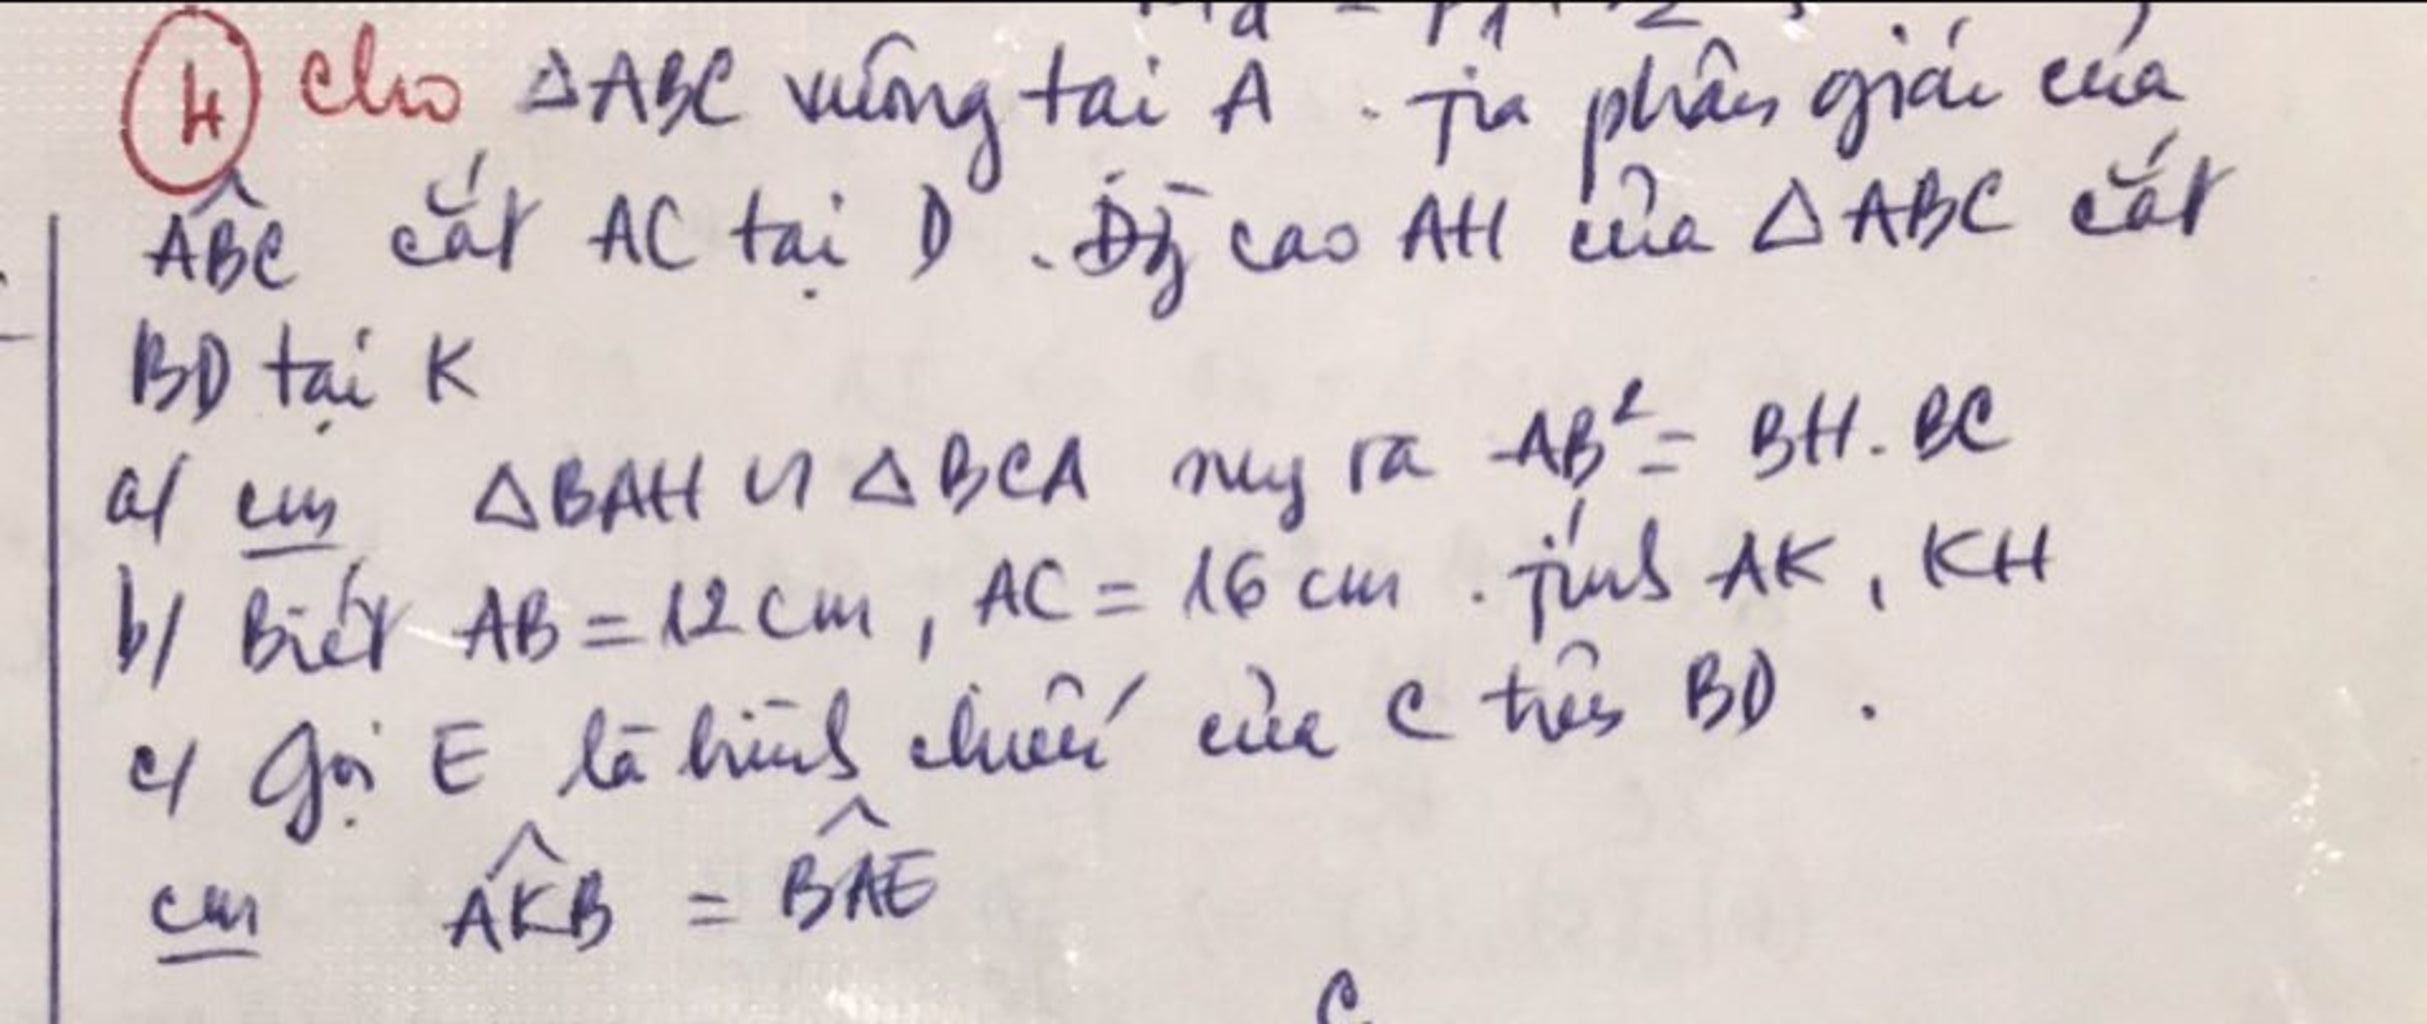 ④ Cho △ABC vuông tại A. Tia phân giác của
ABC cắt AC tại D. Đg cao AH của △ABC cắt
BD tại K
a/ cm △BAH ᔕ △BCA suy ra AB² = BH.BC
b/ Biết AB = 12cm, AC = 16cm. Tính AK, KH
c/ Gọi E là hình chiếu của C trên BD.
cm AKB = BAE
C